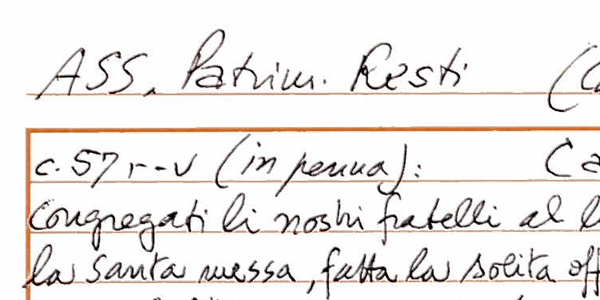 ASS. Patrim. Resti
c. 57 r-v (in penna):
Congregati li nostri fratelli al
la santa messa, fatta la solita